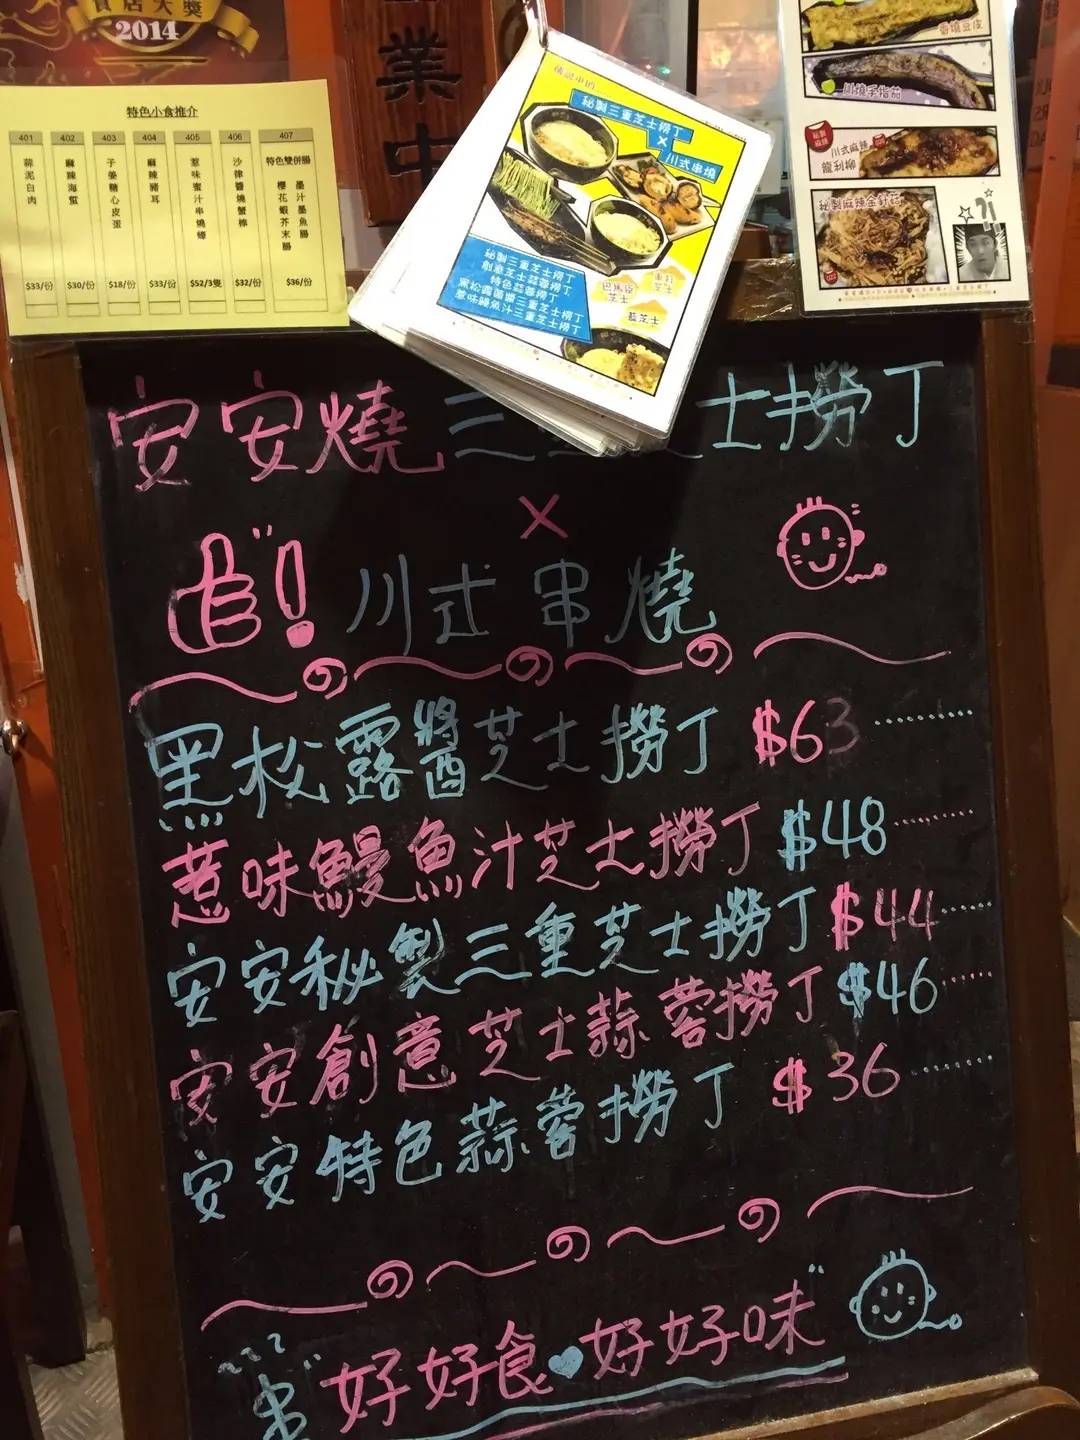 賞店大獎
2014
業中
特色小食推介
401 402 403 404 405 406 407
蒜泥白肉
麻辣海蜇
子姜糖心皮蛋
麻辣豬耳
惹味蜜汁串燒蠔
沙律醬燒蟹棒
特色雙併腸
櫻花蝦芥末腸
墨汁墨魚腸
$33/份 $30/份 $18/份 $33/份 $52/3隻 $32/份 $36/份
傳說中的
秘製三重芝士撈丁
X
川式串燒
秘製三重芝士撈丁
創意芝士蒜蓉撈丁
特色蒜蓉撈丁
黑松露菌醬三重芝士撈丁
惹味鰻魚汁三重芝士撈丁
巴馬臣芝士
車打芝士
藍芝士
香燒豆皮
川燒手指茄
秘製麻辣
川式麻辣
龍利柳
秘製麻辣金針菇
?!
安安燒三
士撈丁
X
!
川式串燒
黑松露醬芝士撈丁 $63
惹味鰻魚汁芝士撈丁 $48
安安秘製三重芝士撈丁 $44
安安創意芝士蒜蓉撈丁 $46
安安特色蒜蓉撈丁 $36
串 "好好食♥好好味"